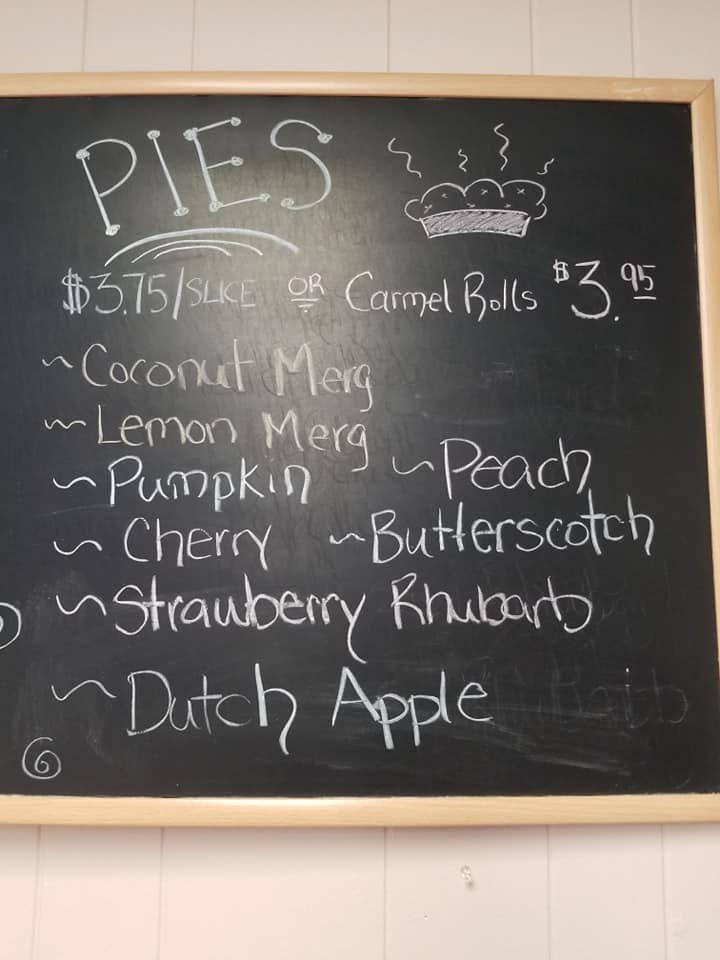 PIES
$3.75/SLICE OR Carmel Rolls $3.95
~Coconut Merg
~Lemon Merg
~Pumpkin ~Peach
~Cherry ~Butterscotch
~Strawberry Rhubarb
~Dutch Apple